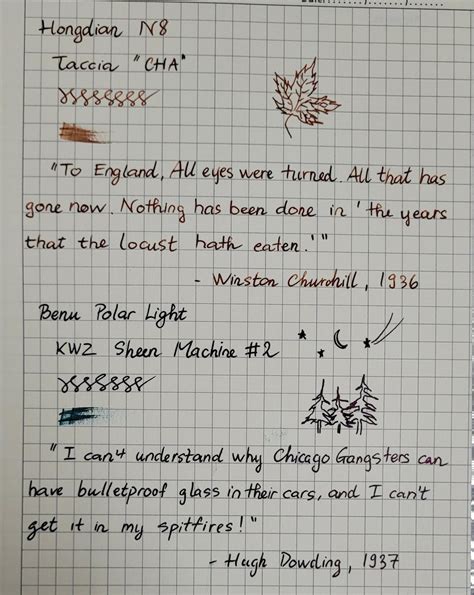 Hongdian N8
Taccia "CHA"
"To England, All eyes were turned. All that has
gone now. Nothing has been done in 'the years
that the locust hath eaten.'"
- Winston Churchill, 1936
Benu Polar Light
KWZ Sheen Machine #2
"I can't understand why Chicago Gangsters can
have bulletproof glass in their cars, and I can't
get it in my spitfires!"
- Hugh Dowding, 1937